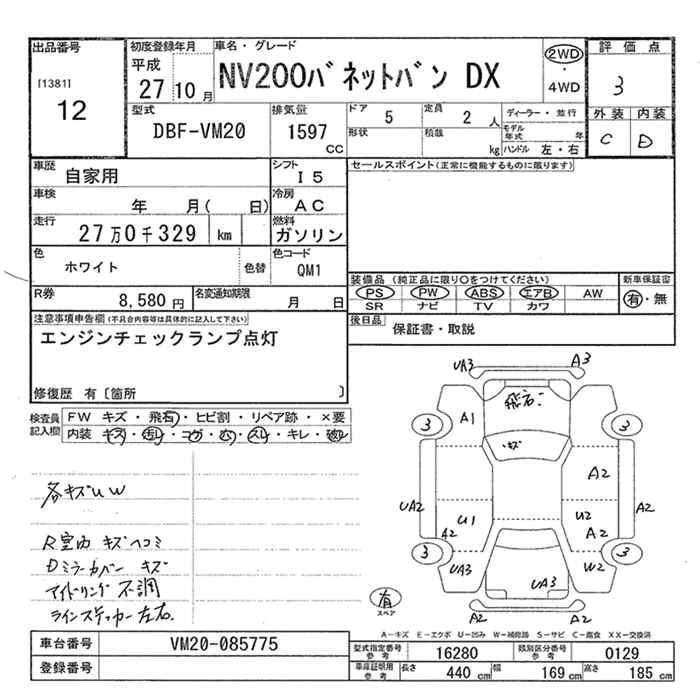 出品番号
[1381]
12
初度登録年月
平成
27 10 月
車名・グレード
NV200バネットバン DX
2WD
・
4WD
評価点
3
型式
DBF-VM20
排気量
1597
CC
ドア
5
定員
2 人
形状
積載
kg
ディーラー・並行
モデル年式 年
ハンドル 左・右
外装 内装
C D
車歴
自家用
シフト
I 5
車検
年 月( 日)
冷房
AC
走行
27万0千329 km
燃料
ガソリン
色
ホワイト
色替
色コード
QM1
R券
8,580 円
名変通知期限
月 日
セールスポイント(正常に機能するものに限ります)
装備品 (純正品に限り○をつけてください)
PS PW ABS エアB AW
SR ナビ TV カワ
新車保証書
有・無
後日品
保証書・取説
注意事項申告欄(不具合内容等は具体的に記入して下さい)
エンジンチェックランプ点灯
修復歴 有〔箇所 〕
検査員記入欄
FW キズ・飛石・ヒビ割・リペア跡・×要
内装 キズ・汚レ・コゲ・穴・スレ・キレ・破レ
各キズUW
R室内 キズヘコミ
Dミラーカバー キズ
アイドリング不調
ラインステッカー左右
UA3 A3
飛石
3 A1 3
キズ
A2
UA2 U1 U2 A2
A2 A2
3 UA3 UA3 W2 3
A2 A2
有
スペア
A-キズ E-エクボ U-凹み W-補修跡 S-サビ C-腐食 XX-交換済
車台番号
VM20-085775
登録番号
型式指定番号
参考
16280
類別区分番号
参考
0129
車庫証明用
参考
長さ 440 cm 幅 169 cm 高さ 185 cm